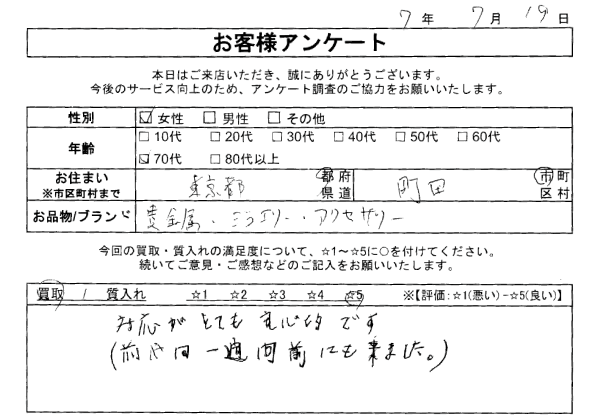 7年 7月 19日
お客様アンケート
本日はご来店いただき、誠にありがとうございます。
今後のサービス向上のため、アンケート調査のご協力をお願いいたします。
性別 ☑女性 □男性 □その他
年齢 □10代 □20代 □30代 □40代 □50代 □60代
☑70代 □80代以上
お住まい 東京都 都府 町田 市町
※市区町村まで 県道 区村
お品物/ブランド 貴金属・ジュエリー・アクセサリー
今回の買取・質入れの満足度について、☆1～☆5に○を付けてください。
続いてご意見・ご感想などのご記入をお願いいたします。
買取 / 質入れ ☆1 ☆2 ☆3 ☆4 ☆5 ※【評価:☆1(悪い)-☆5(良い)】
対応がとても 的です
(前回一週間前にも来ました。)